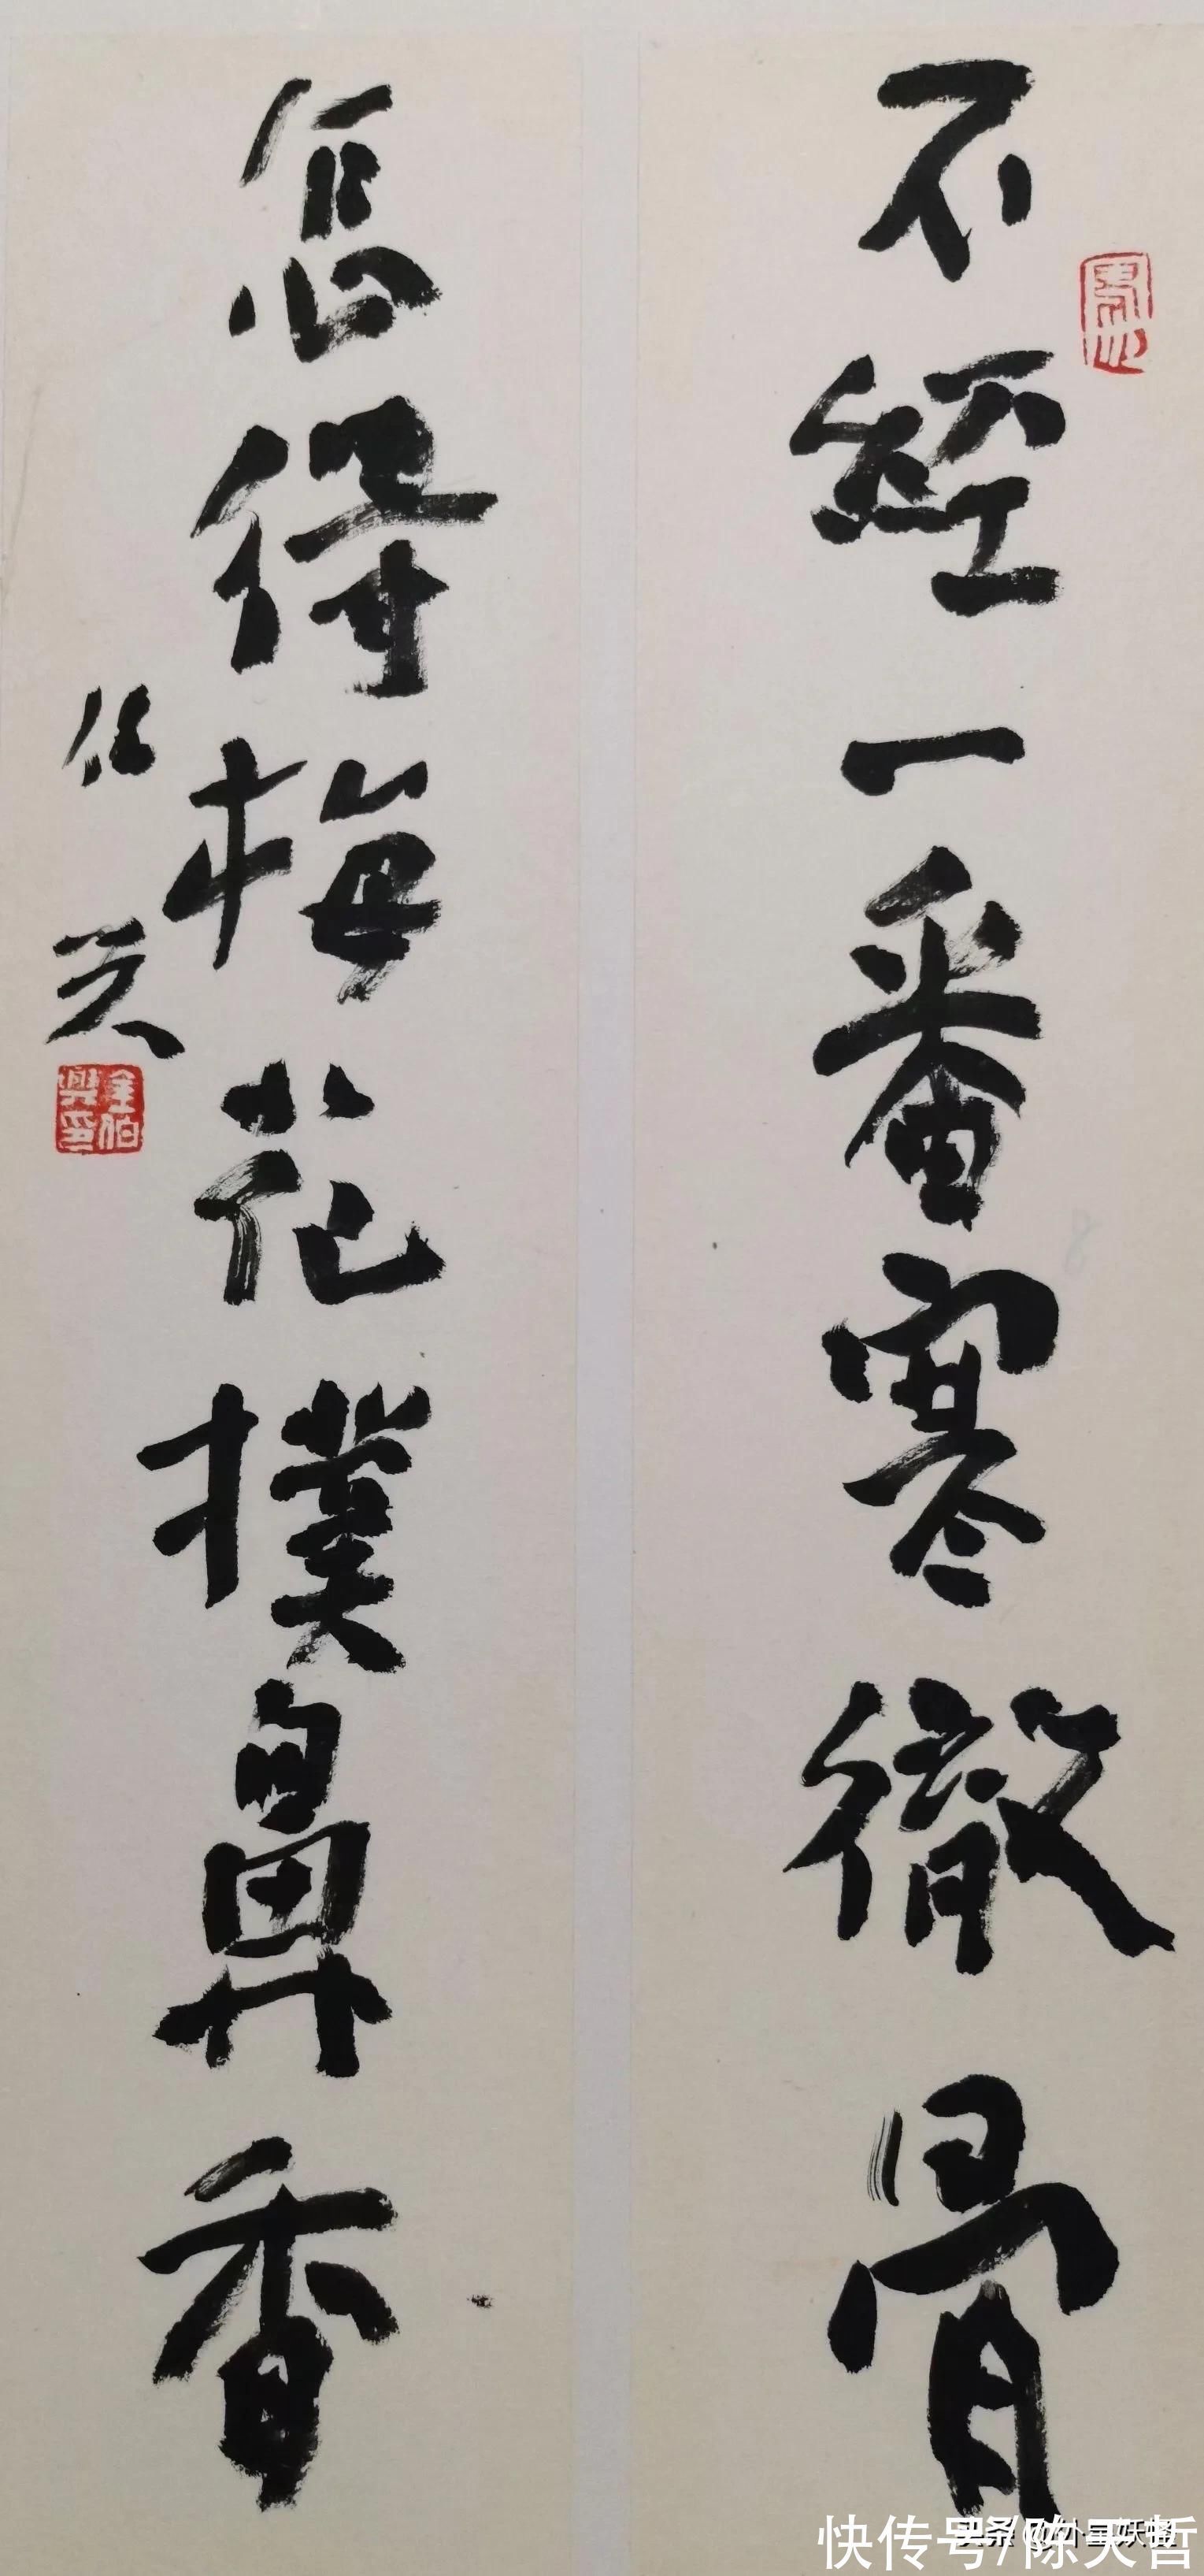 不經一番寒徹骨
怎得梅花撲鼻香
伯興
金伯興印
快传号/陈天哲